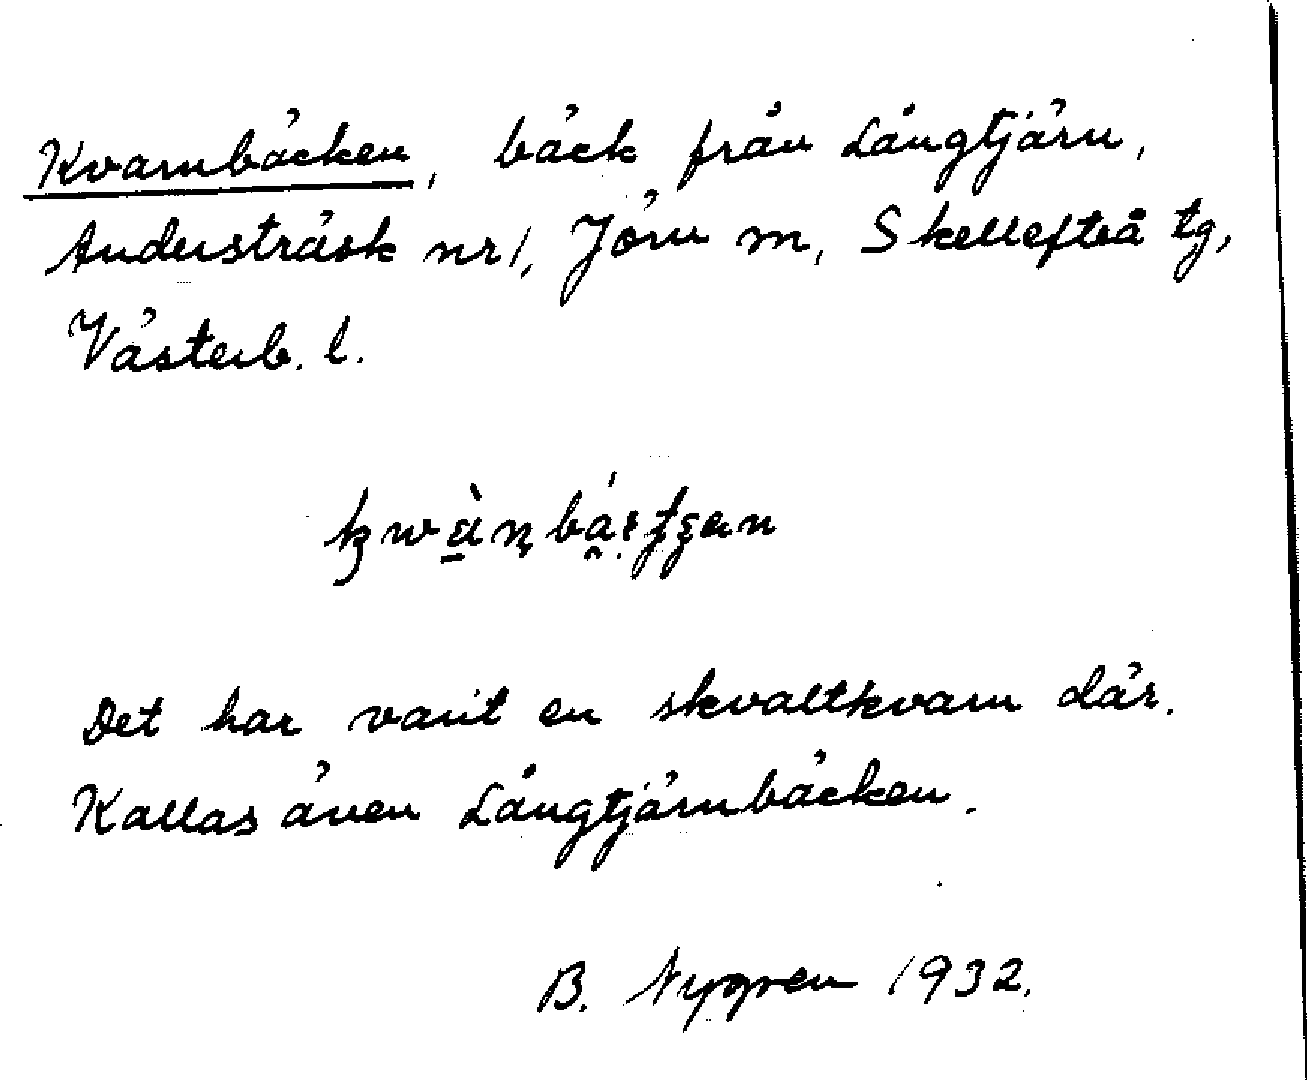 Kvarnbäcken, bäck från Långtjärn,
Andersträsk nr 1, Jörn sn, Skellefteå tg,
Västerb. l.
Det har varit en skvaltkvarn där.
Kallas även Långtjärnbäcken.
B. Nygren 1932.